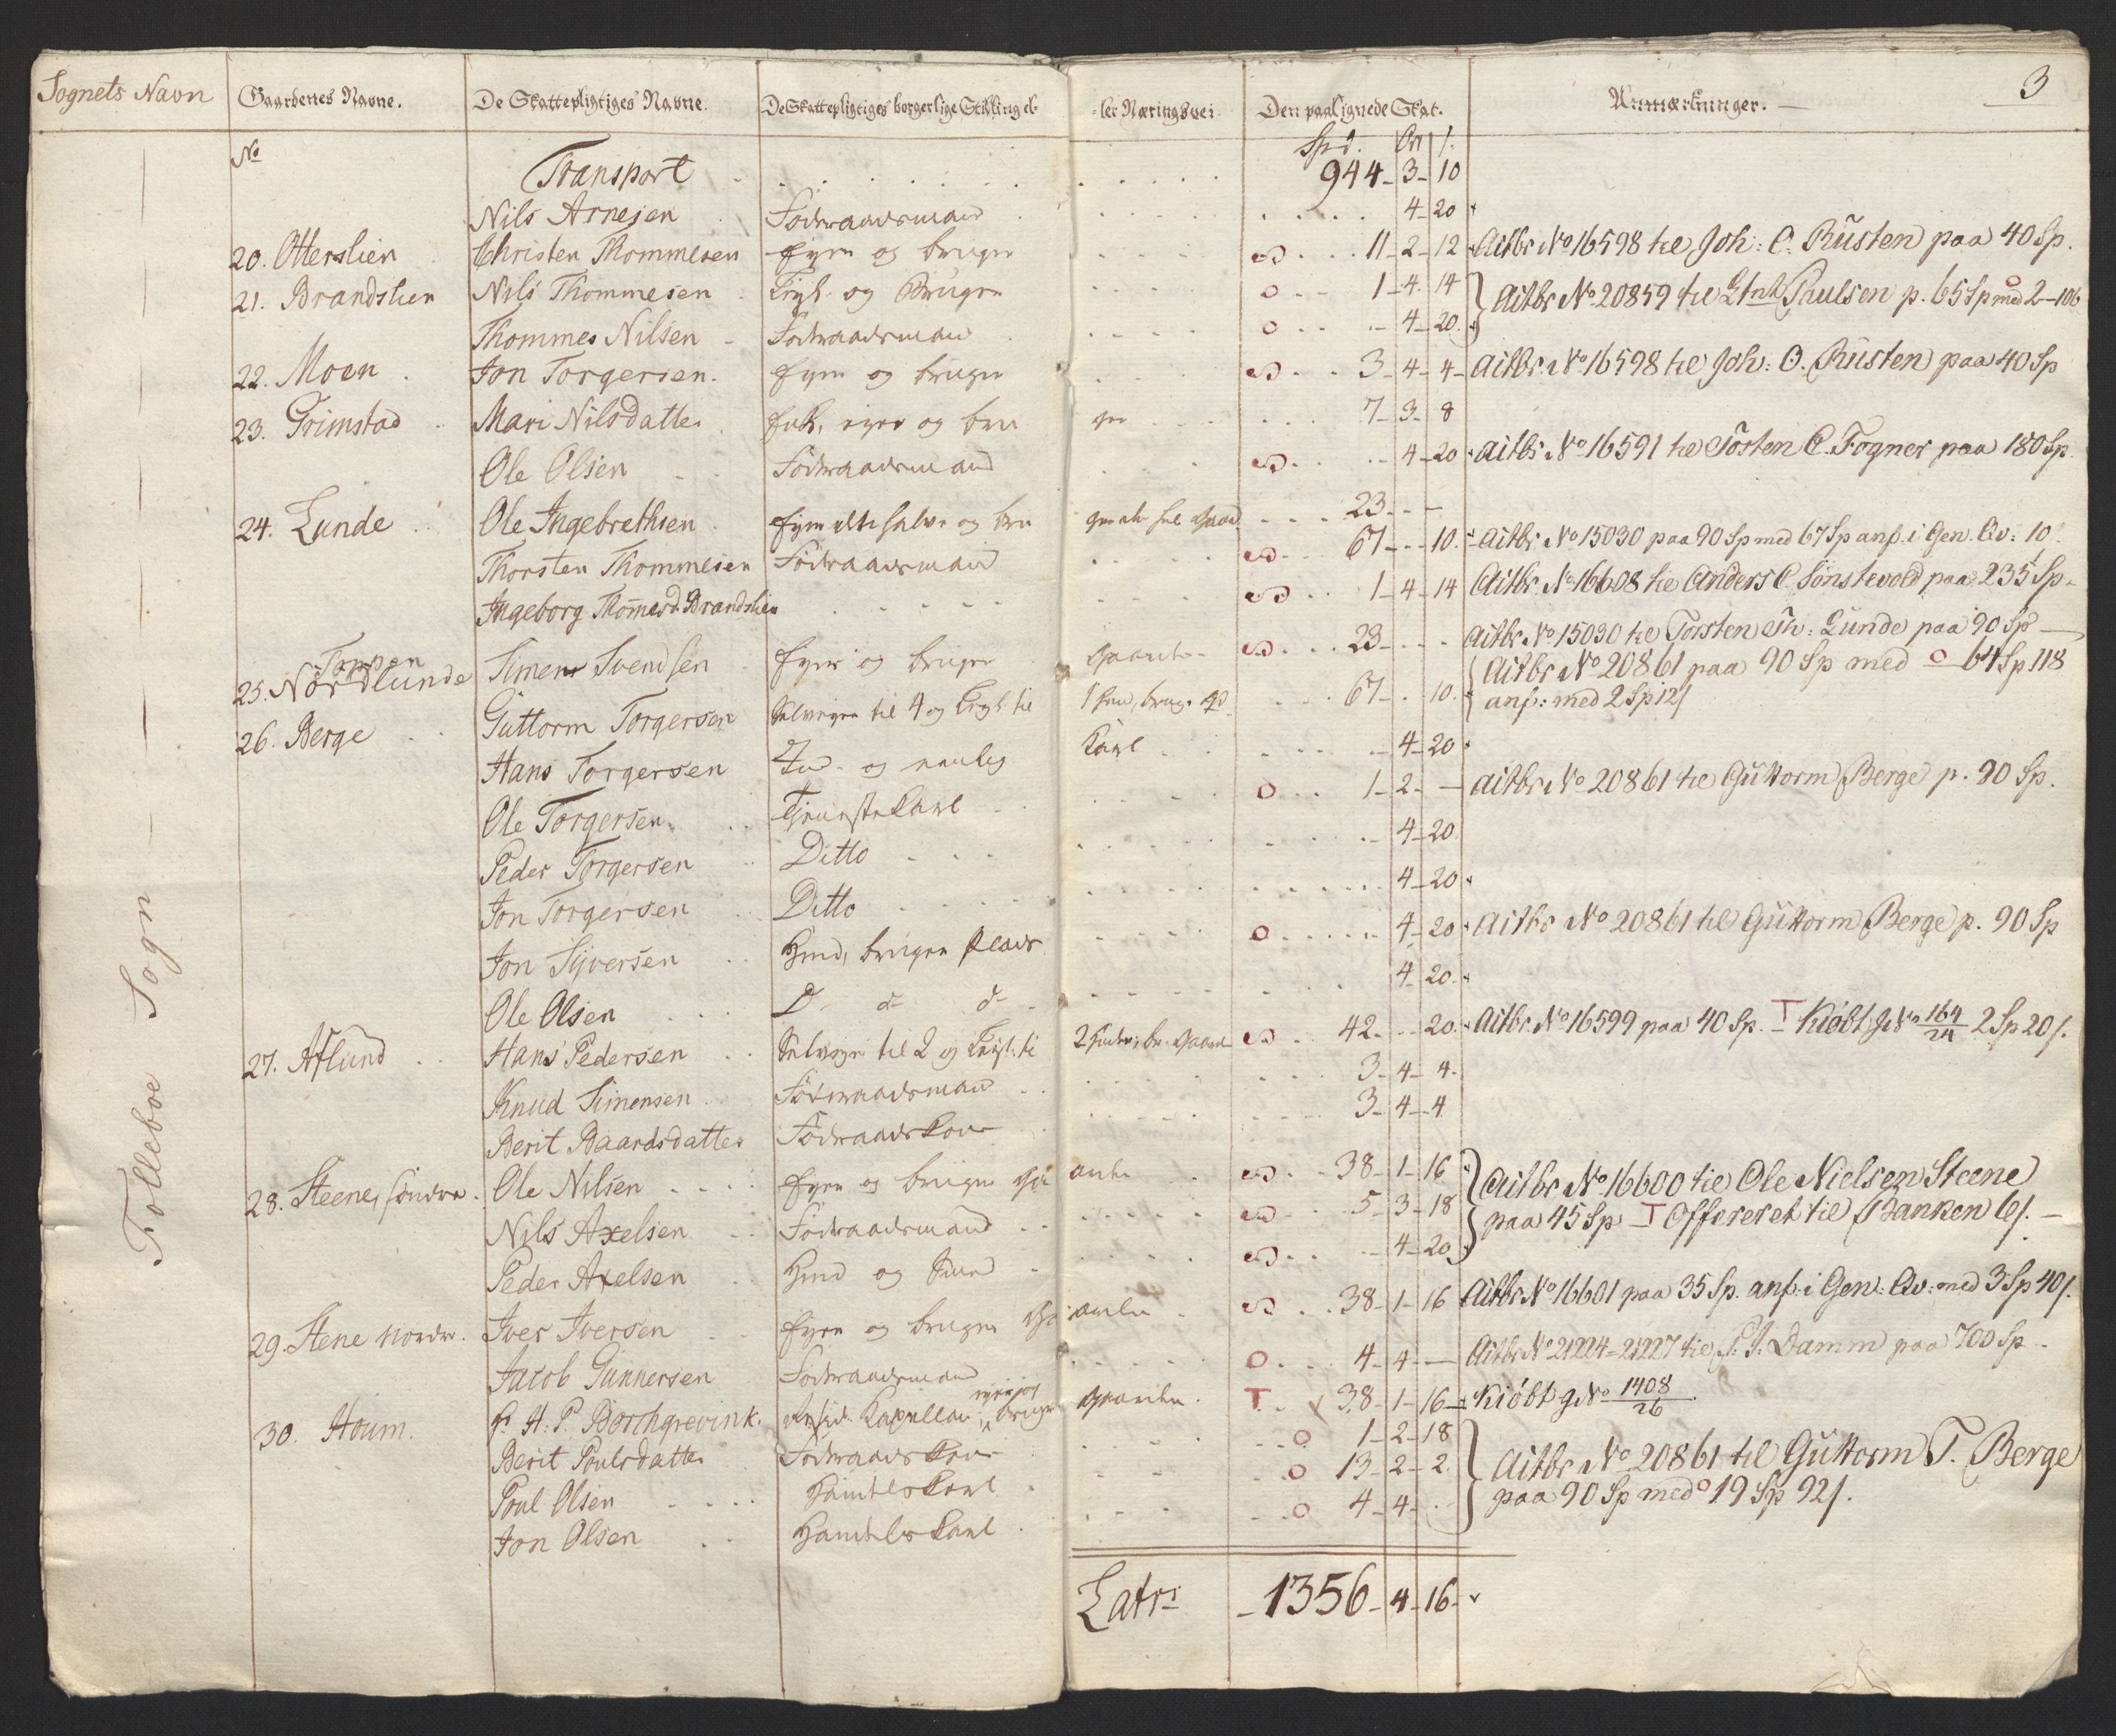 Sognets Navn Gaardenes Navne. De Skattepligtiges Navne. De Skattepligtiges borgerlige Stilling el- -ler Næringsvei. Den paalignede Skat. Anmærkninger. 3
No Spd. Ort /:
Transport 944-3-10
Nils Arnesen Födraadsmand 4-20
20. Otterslien Christen Thommesen Eyer og bruger 11-2-12 Aitbr No 16598 til Joh: O. Rusten paa 40 Sp.
21. Brandslien Nils Thommesen og Bruger o 1-4-14 Aitbr No 20859 til Ltnt Paulsen p. 65 Sp med o 2-106
Thommes Nilsen Födraadsmand o 4-20
22. Moen Jon Torgersen Eyer og bruger 3-4-4 Aitbr. No 16598 til Joh: O. Rusten paa 40 Sp
23. Grimstad Mari Nilsdatter Enke, eyer og bru ger 7-3-8
Ole Olsen Födraadsmand 4-20 Aitbr No 16591 til Torsten C. Fogner paa 180 Sp.
24. Lunde Ole Ingebrethsen Eyer og bru 23
Thorsten Thommesen Födraadsmand 67-10 Aitbr No 15030 paa 90 Sp med 67 Sp anf. i Gen. Qv: 10
Ingeborg Thomesd. Brandslien 1-4-14 Aitbr No 16608 til Anders C. Sönstevold paa 235 Sp
Toppen
25. Nordlunde Simen Svendsen Eyer og bruger Gaarden 23 Aitbr No 15030 til Torsten Th: Lunde paa 90 Sp
26. Berge Guttorm Torgersen Selveyer til 4 og til 67-10 Aitbr No 20861 paa 90 Sp med o 64 Sp 118
anf: med 2 Sp 12/
Hans Torgersen og Karl 4-20
Ole Torgersen Tjenestekarl o 1-2- Aitbr No 20861 til Guttorm Berge p. 90 Sp.
Peder Torgersen Ditto 4-20
Jon Torgersen Ditto 4-20
Jon Syversen bruger Plads o 4-20 Aitbr No 20861 til Guttorm Berge p. 90 Sp
Ole Olsen D d d 4-20
27. Aflund Hans Pedersen Selveyer til 2 og 42-20 Aitbr. No 16599 paa 40 Sp. T Kiöbt g No 164/24 2 Sp 20/.
Knud Simensen Födraadsmand 3-4-4
Berit Baardsdatter Födraadskone 3-4-4
28. Steene, söndre Ole Nilsen Eyer og bruger Ga arden 38-1-16 Aitbr No 16600 til Ole Nielsen Steene
Nils Axelsen Födraadsmand 5-3-18 paa 45 Sp T Offereret til Banken 6/.
Peder Axelsen og 4-20
29. Stene nordre Iver Iversen Eyer og bruger Ga arden 38-1-16 Aitbr No 16601 paa 35 Sp. anf. i Gen: Qv: med 3 Sp 40/.
Jacob Gunnersen Födraadsmand o 4-4- Aitbr No 21224=21227 til Damm paa 700 Sp
30. Houm. H. P. Borchgrevink. Resid. Kapellan, eyer og bruger Gaarden. T 38-1-16 Kiöbt g No 1408/26
Berit Poulsdatter Födraadskone o 1-2-18
Poul Olsen Handelskarl o 13-2-2 Aitbr No 20861 til Guttorm T. Berge
Jon Olsen Handelskarl o 4-4- paa 90 Sp med o 19 Sp 92/.
Latr: 1356-4-16
Folleboe Sogn